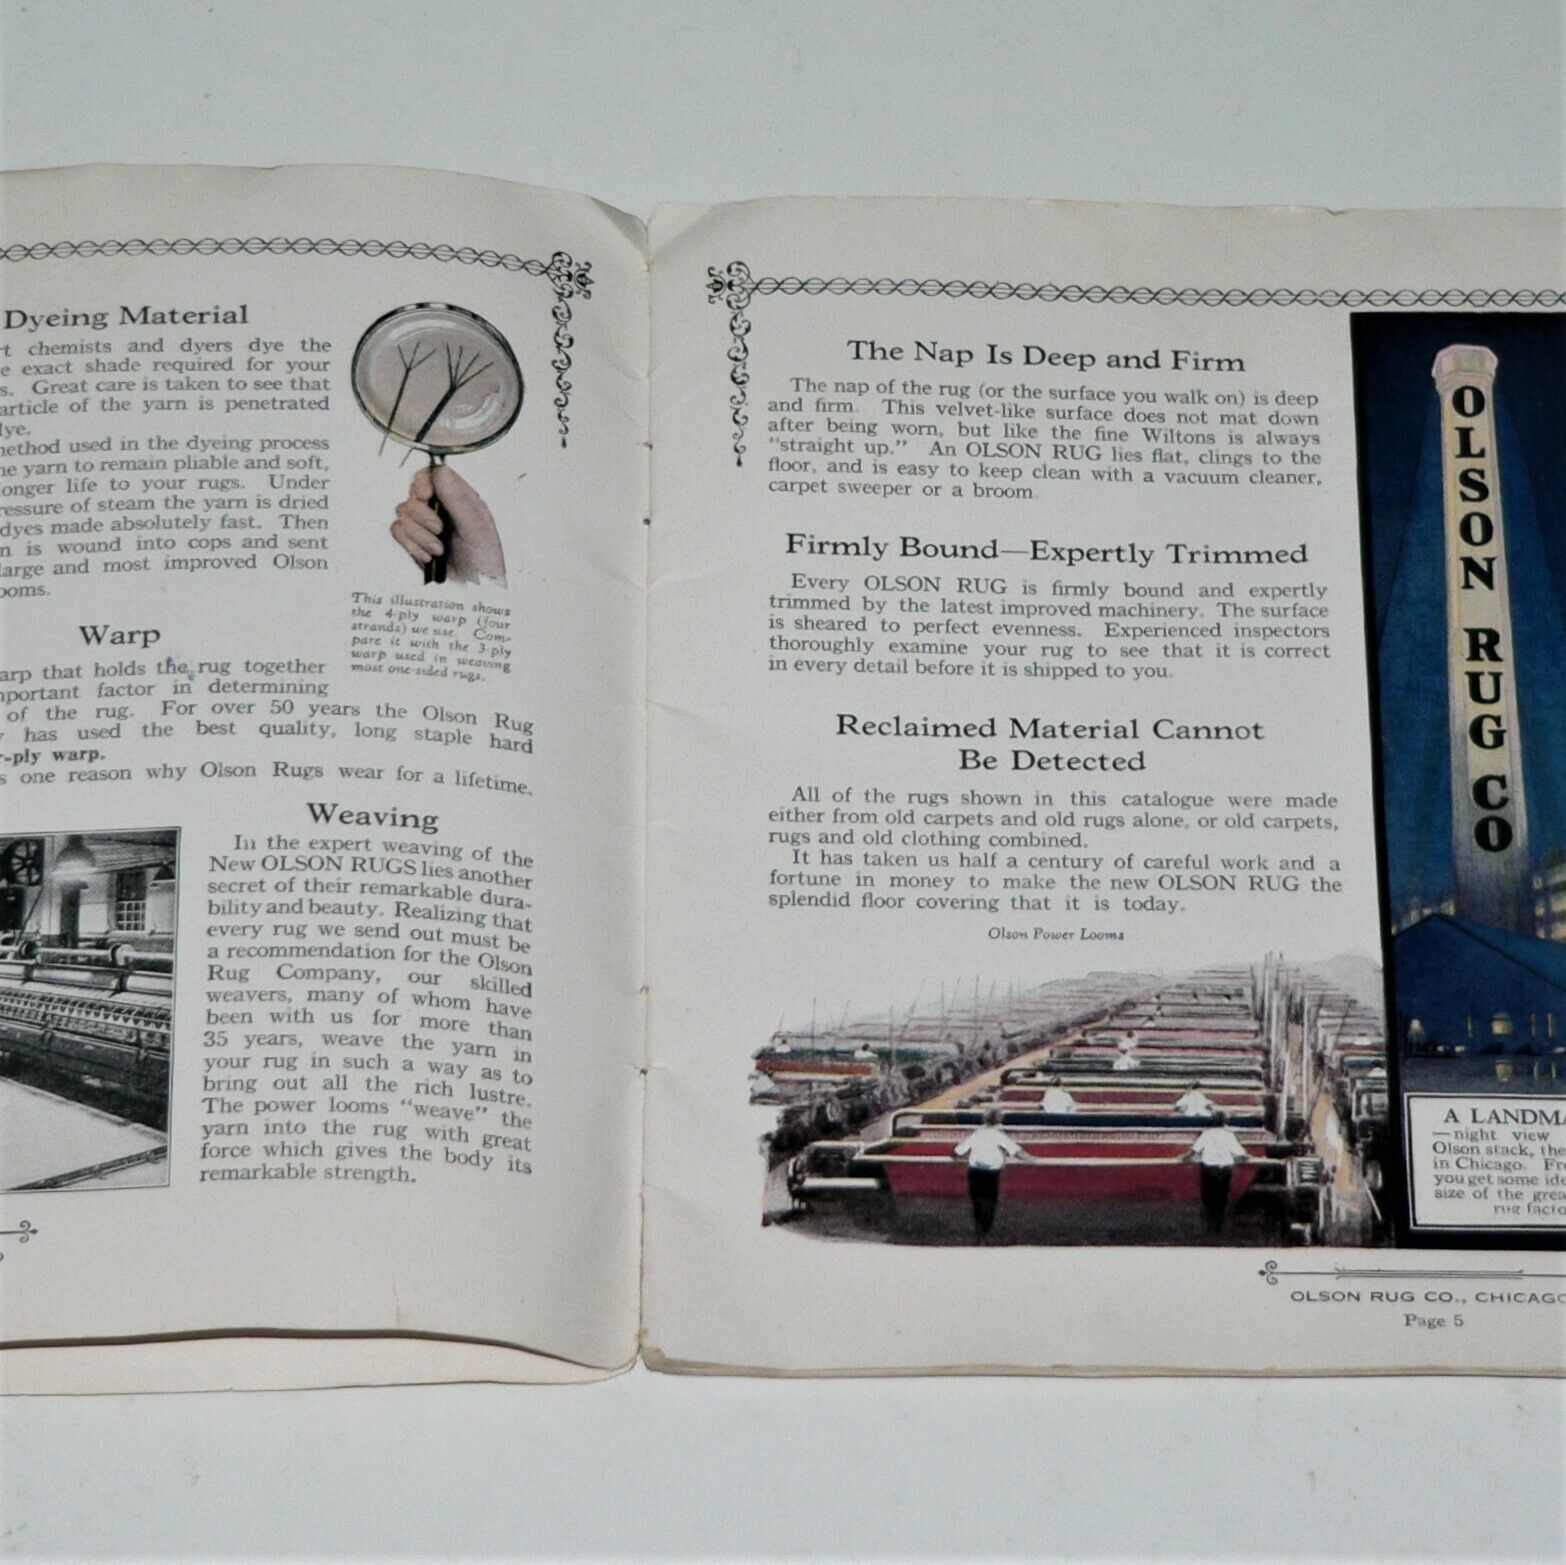 Dyeing Material
chemists and dyers dye the
exact shade required for your
Great care is taken to see that
article of the yarn is penetrated
method used in the dyeing process
yarn to remain pliable and soft,
longer life to your rugs. Under
pressure of steam the yarn is dried
dyes made absolutely fast. Then
is wound into cops and sent
large and most improved Olson
This illustration shows
the 4-ply warp (four
strands) we use. Com-
pare it with the 3-ply
warp used in weaving
most one-sided rugs.
Warp
that holds the rug together
important factor in determining
of the rug. For over 50 years the Olson Rug
has used the best quality, long staple hard
-ply warp.
one reason why Olson Rugs wear for a lifetime.
Weaving
In the expert weaving of the
New OLSON RUGS lies another
secret of their remarkable dura-
bility and beauty. Realizing that
every rug we send out must be
a recommendation for the Olson
Rug Company, our skilled
weavers, many of whom have
been with us for more than
35 years, weave the yarn in
your rug in such a way as to
bring out all the rich lustre.
The power looms "weave" the
yarn into the rug with great
force which gives the body its
remarkable strength.
The Nap Is Deep and Firm
The nap of the rug (or the surface you walk on) is deep
and firm. This velvet-like surface does not mat down
after being worn, but like the fine Wiltons is always
"straight up." An OLSON RUG lies flat, clings to the
floor, and is easy to keep clean with a vacuum cleaner,
carpet sweeper or a broom.
Firmly Bound—Expertly Trimmed
Every OLSON RUG is firmly bound and expertly
trimmed by the latest improved machinery. The surface
is sheared to perfect evenness. Experienced inspectors
thoroughly examine your rug to see that it is correct
in every detail before it is shipped to you.
Reclaimed Material Cannot
Be Detected
All of the rugs shown in this catalogue were made
either from old carpets and old rugs alone, or old carpets,
rugs and old clothing combined.
It has taken us half a century of careful work and a
fortune in money to make the new OLSON RUG the
splendid floor covering that it is today.
Olson Power Looms
OLSON RUG CO
A LANDMA
—night view
Olson stack, the
in Chicago. Fr
you get some ide
size of the grea
rug facto
OLSON RUG CO., CHICAGO
Page 5